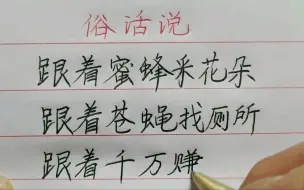 俗话说
跟着蜜蜂采花朵
跟着苍蝇找厕所
跟着千万赚